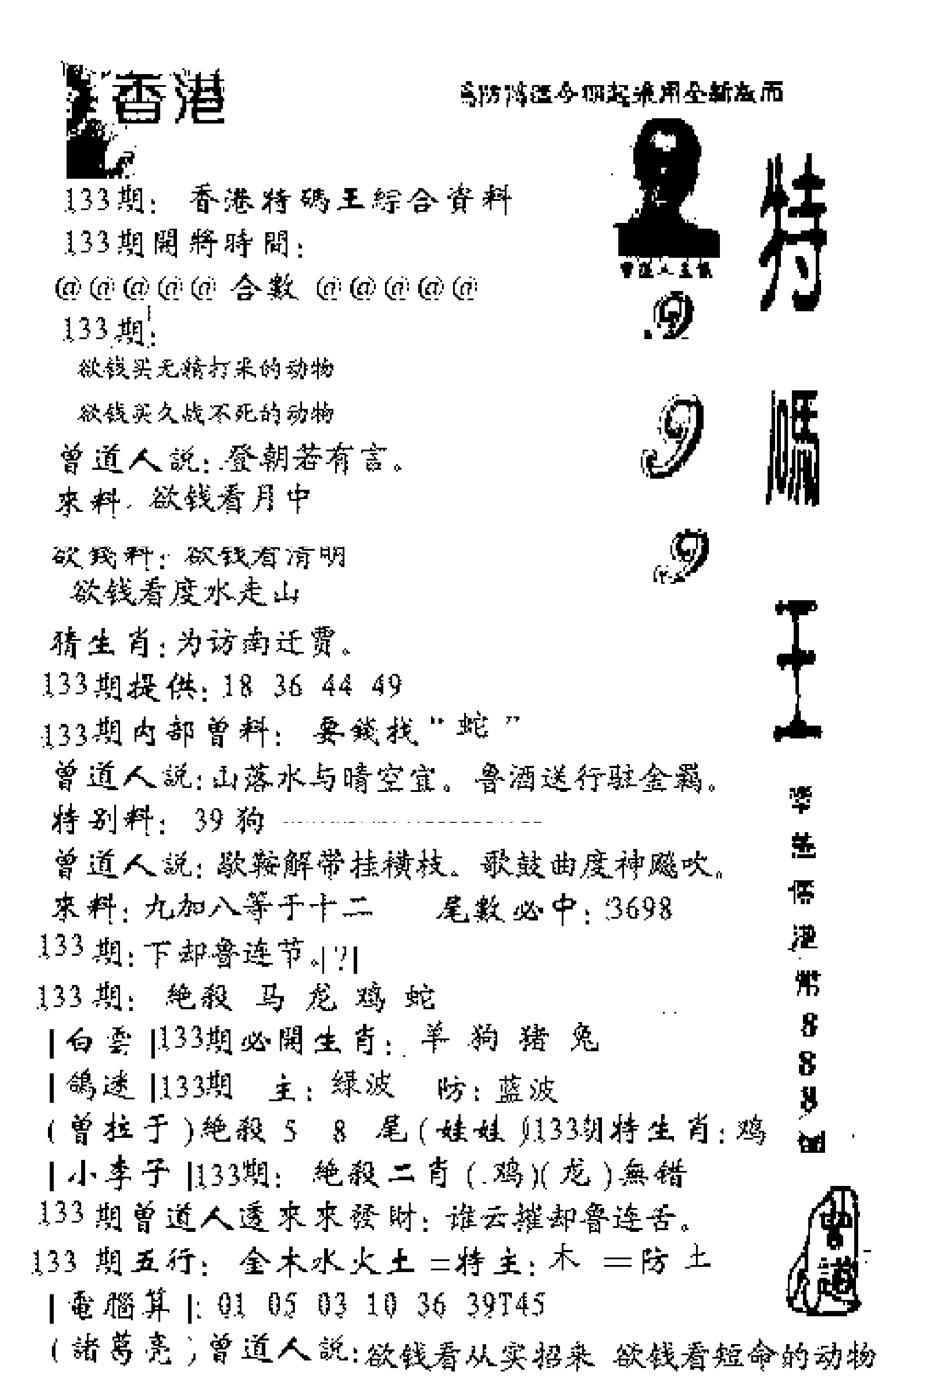 香港
133期: 香港特碼王綜合資料
133期開將時間:
@@@@@ 合數 @@@@@
133期:
欲钱买无精打采的动物
欲钱买久战不死的动物
曾道人説:登朝若有言。
來料. 欲钱看月中
欲錢料: 欲钱看清明
欲钱看度水走山
猜生肖:为访南迁贾。
133期提供: 18 36 44 49
133期内部曾料: 要錢找"蛇"
曾道人説:山落水与晴空宜。鲁酒送行驻金羁。
特别料: 39狗
曾道人説:歇鞍解带挂横枝。歌鼓曲度神飚吹。
來料:九加八等于十二 尾數必中:3698
133期:下却鲁连节。|?|
133期: 絶殺 马 龙 鸡 蛇
|白雲|133期必開生肖: 羊 狗 猪 兔
|鴿迷|133期 主:緑波 防:蓝波
(曾拉于)絶殺 5 8 尾(娃娃)133期特生肖:鸡
|小李子|133期: 絶殺二肖(鸡)(龙)無错
133期曾道人透來來發財:谁云摧却鲁连舌。
133 期五行: 金木水火土=特主:木 =防 土
|電腦算|: 01 05 03 10 36 39T45
(諸葛亮)曾道人説:欲钱看从实招来 欲钱看短命的动物
曾道人主
9
9
9
特
碼
王
港
幣
8
8
8
曾
道